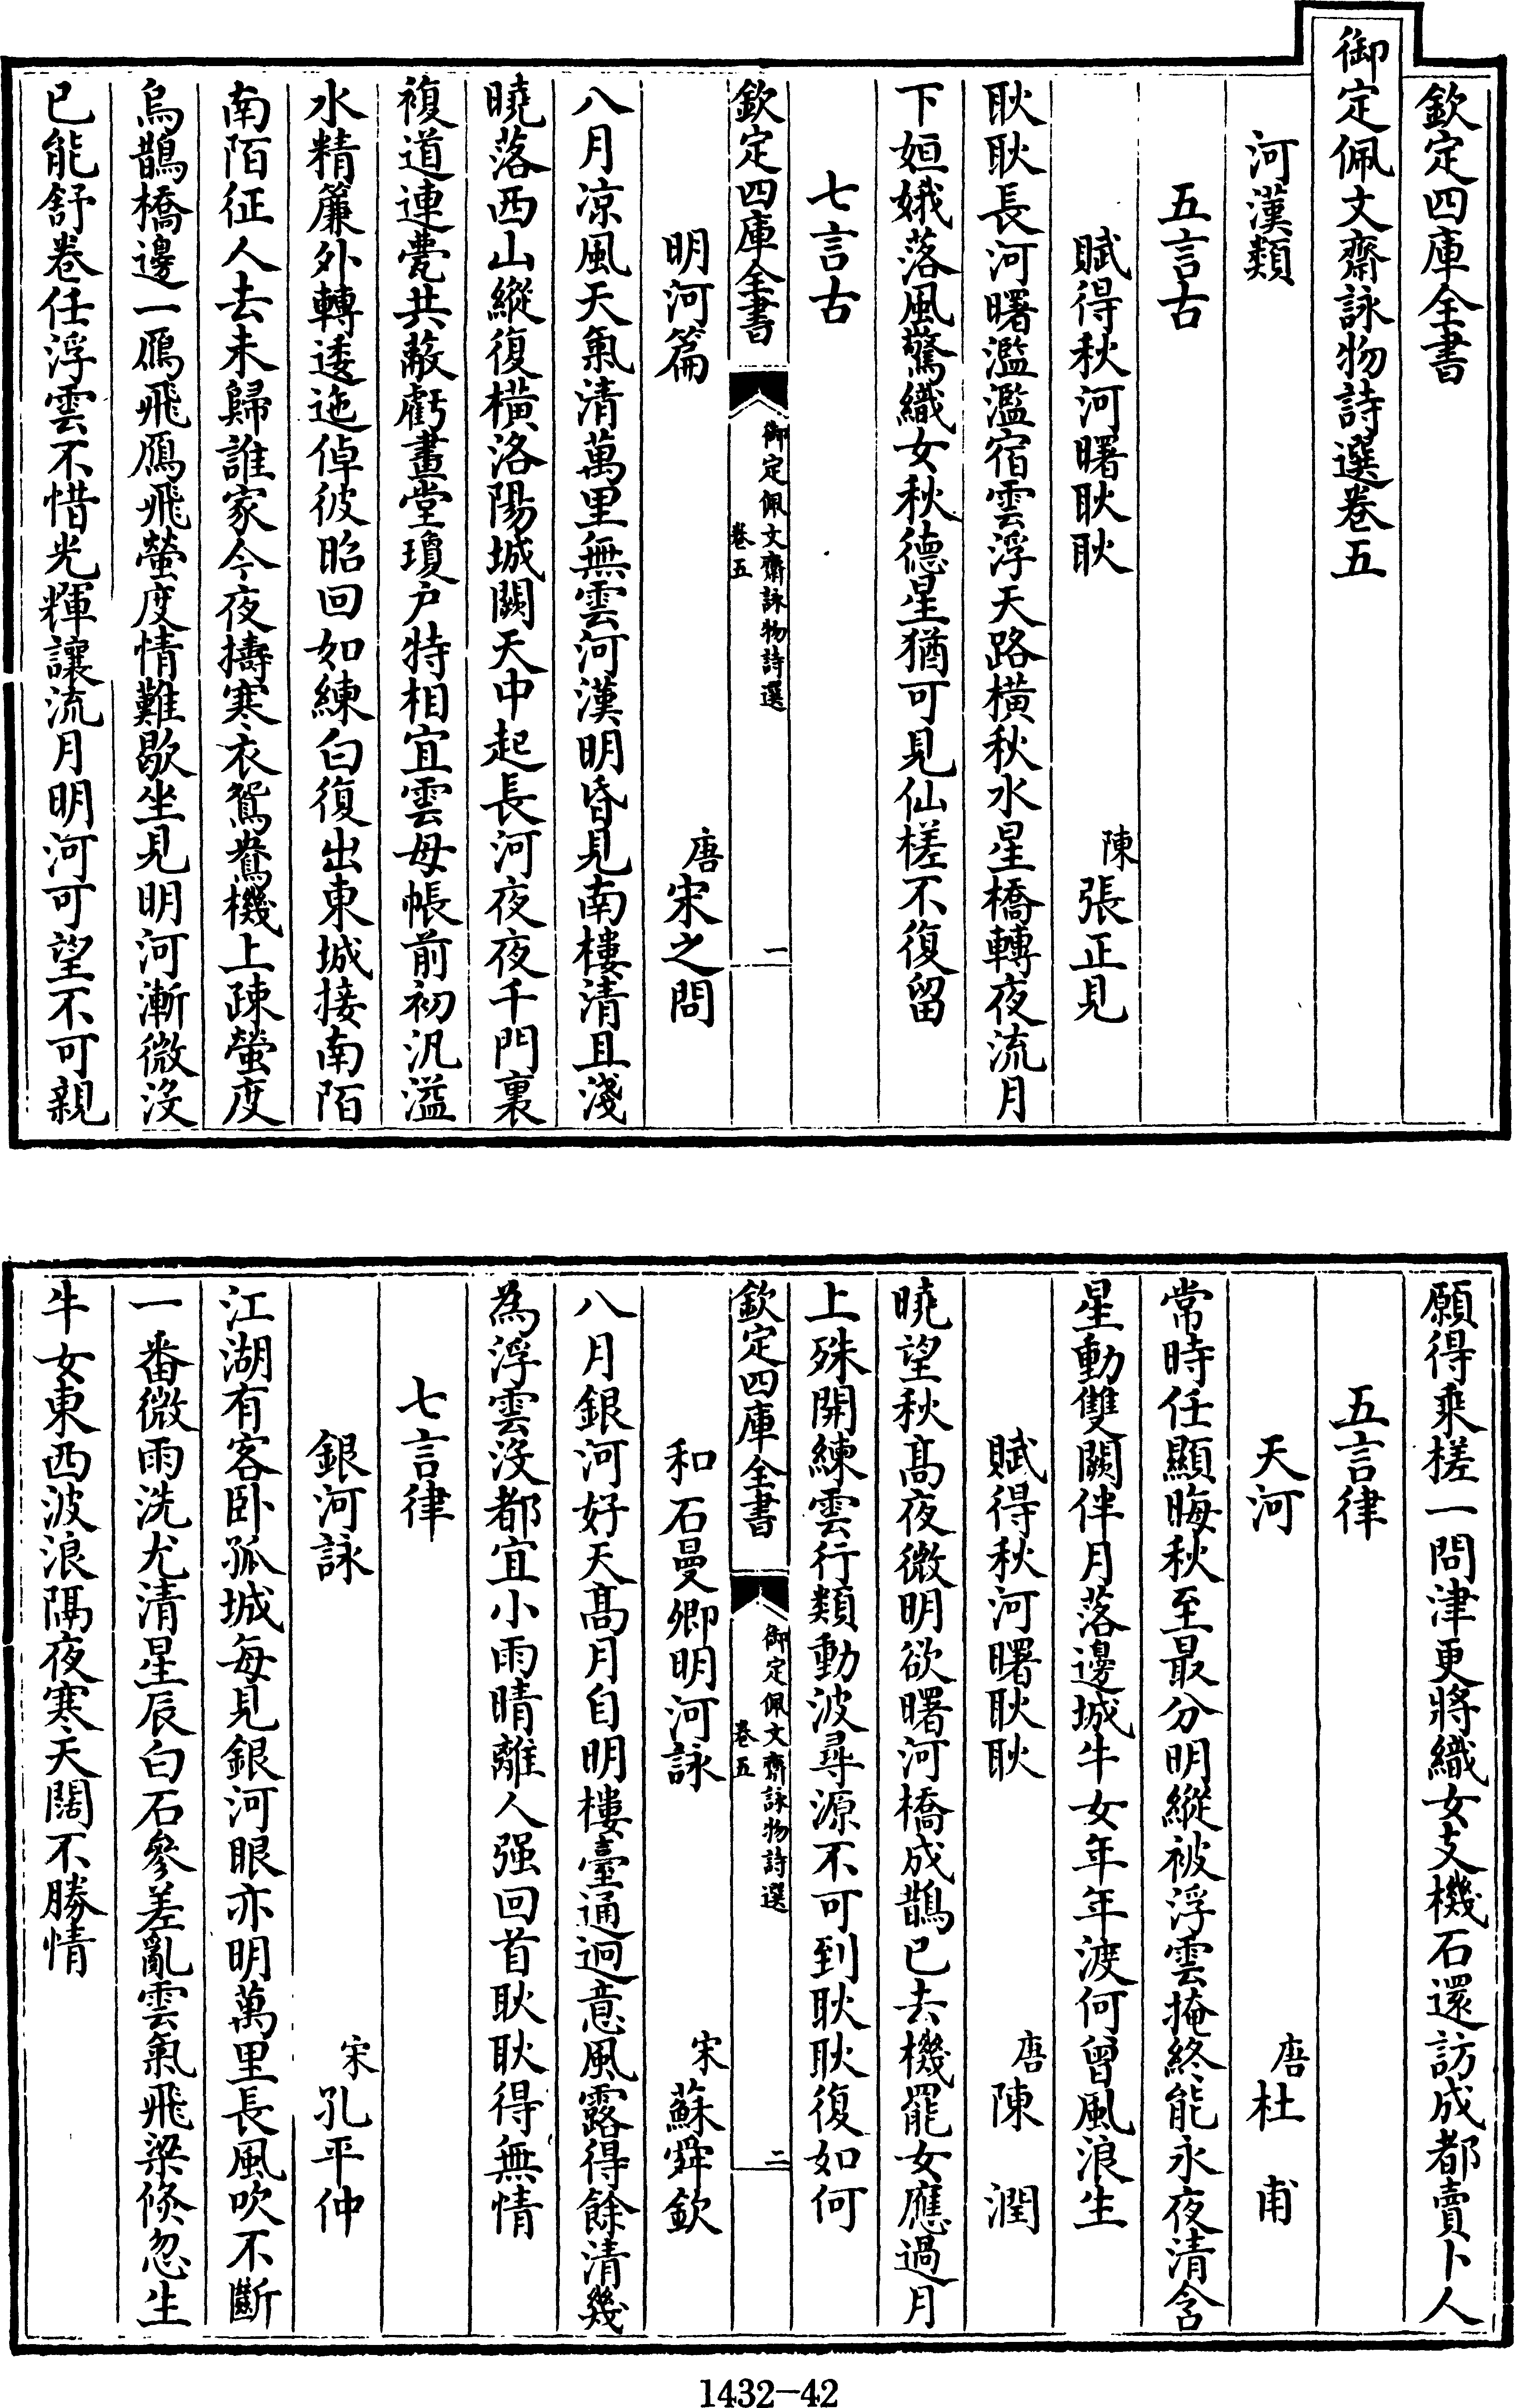 欽定四庫全書
御定佩文齋詠物詩選卷五
河漢類
五言古
賦得秋河曙耿耿　陳張正見
耿耿長河曙濫濫宿雲浮天路橫秋水星橋轉夜流月
下姮娥落風驚織女秋德星猶可見仙槎不復留
七言古
欽定四庫全書　御定佩文齋詠物詩選　卷五　一
明河篇　唐宋之問
八月凉風天氣清萬里無雲河漢明昏見南樓清且淺
曉落西山縱復橫洛陽城闕天中起長河夜夜千門裏
複道連甍共蔽虧畫堂瓊戶特相宜雲母帳前初汎溢
水精簾外轉逶迤倬彼昭回如練白復出東城接南陌
南陌征人去未歸誰家今夜擣寒衣鴛鴦機上疎螢度
烏鵲橋邊一鴈飛鴈飛螢度情難歇坐見明河漸微沒
已能舒卷任浮雲不惜光輝讓流月明河可望不可親
願得乘槎一問津更將織女支機石還訪成都賣卜人
五言律
天河　唐杜甫
常時任顯晦秋至最分明縱被浮雲掩終能永夜清含
星動雙闕伴月落邊城牛女年年渡何曾風浪生
賦得秋河曙耿耿　唐陳潤
曉望秋髙夜微明欲曙河橋成鵲已去機罷女應過月
上殊開練雲行類動波尋源不可到耿耿復如何
欽定四庫全書　御定佩文齋詠物詩選　卷五　二
和石曼卿明河詠　宋蘇舜欽
八月銀河好天髙月自明樓臺通迥意風露得餘清幾
為浮雲沒都宜小雨晴離人强回首耿耿得無情
七言律
銀河詠　宋孔平仲
江湖有客卧孤城每見銀河眼亦明萬里長風吹不斷
一番微雨洗尤清星辰白石參差亂雲氣飛梁倐忽生
牛女東西波浪隔夜寒天闊不勝情
1432-42